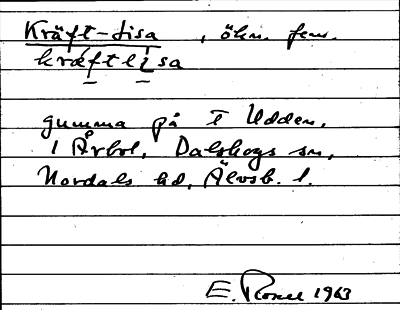 Kräft-Lisa, ökn. fem.
kräftlisa
gumma på T Udden,
i Årbol, Dalskogs sn,
Nordals hd, Älvsb. l.
E. 1963